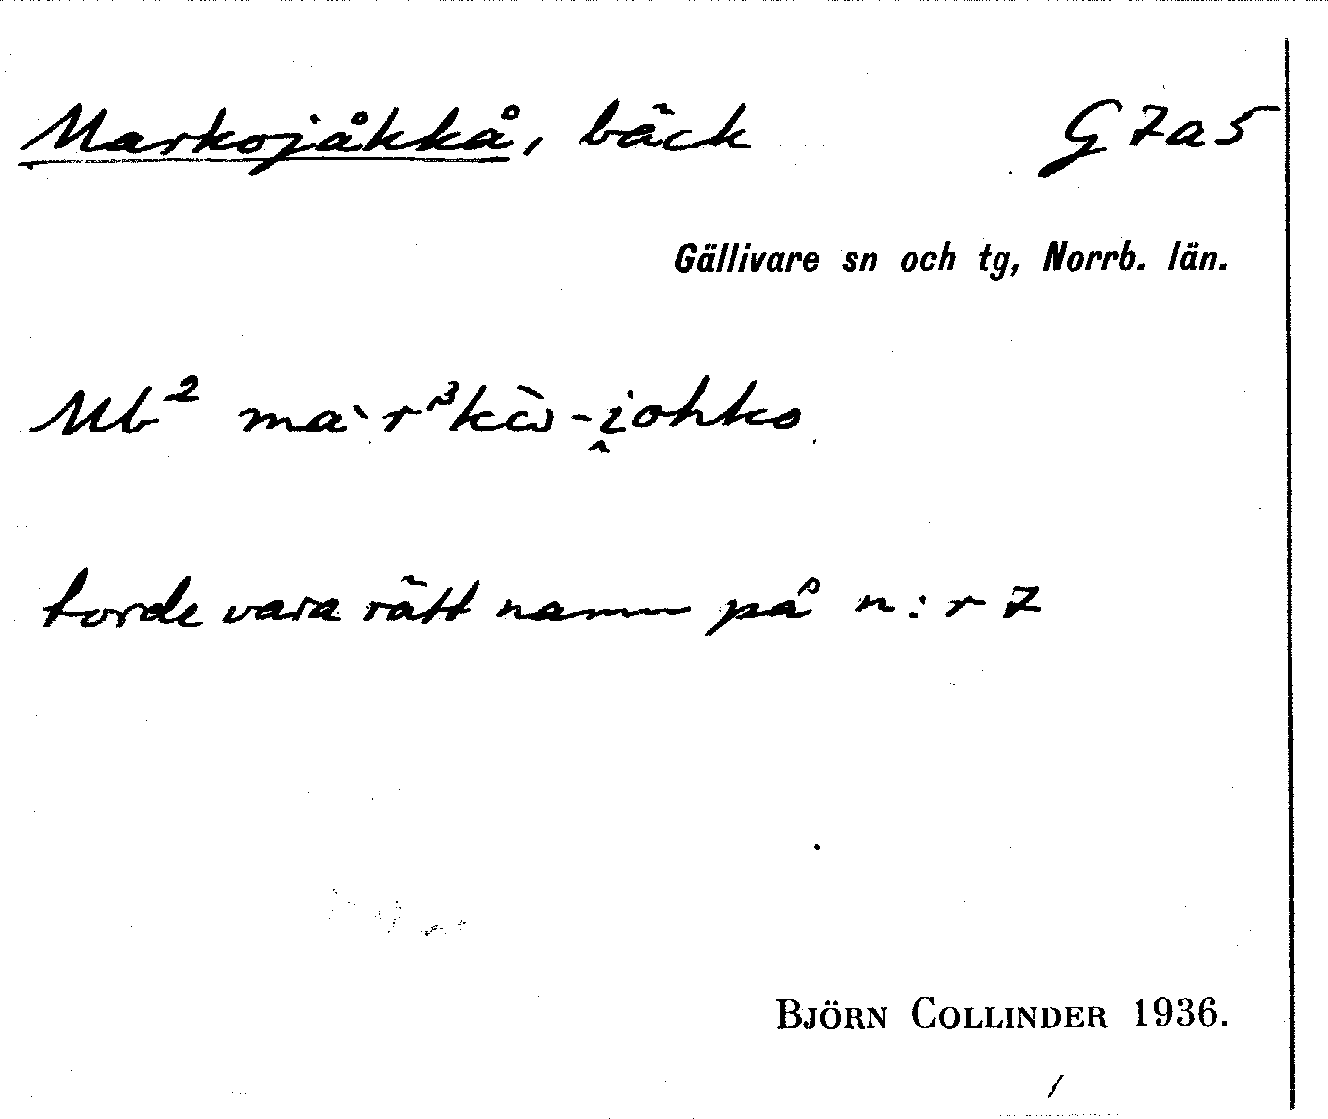 Markojåkkå, bäck G 7a5
Gällivare sn och tg, Norrb. län.
Mb² ma`r³kὼ-i̭ohko
torde vara rätt namn på n:r 7
BJÖRN COLLINDER 1936.